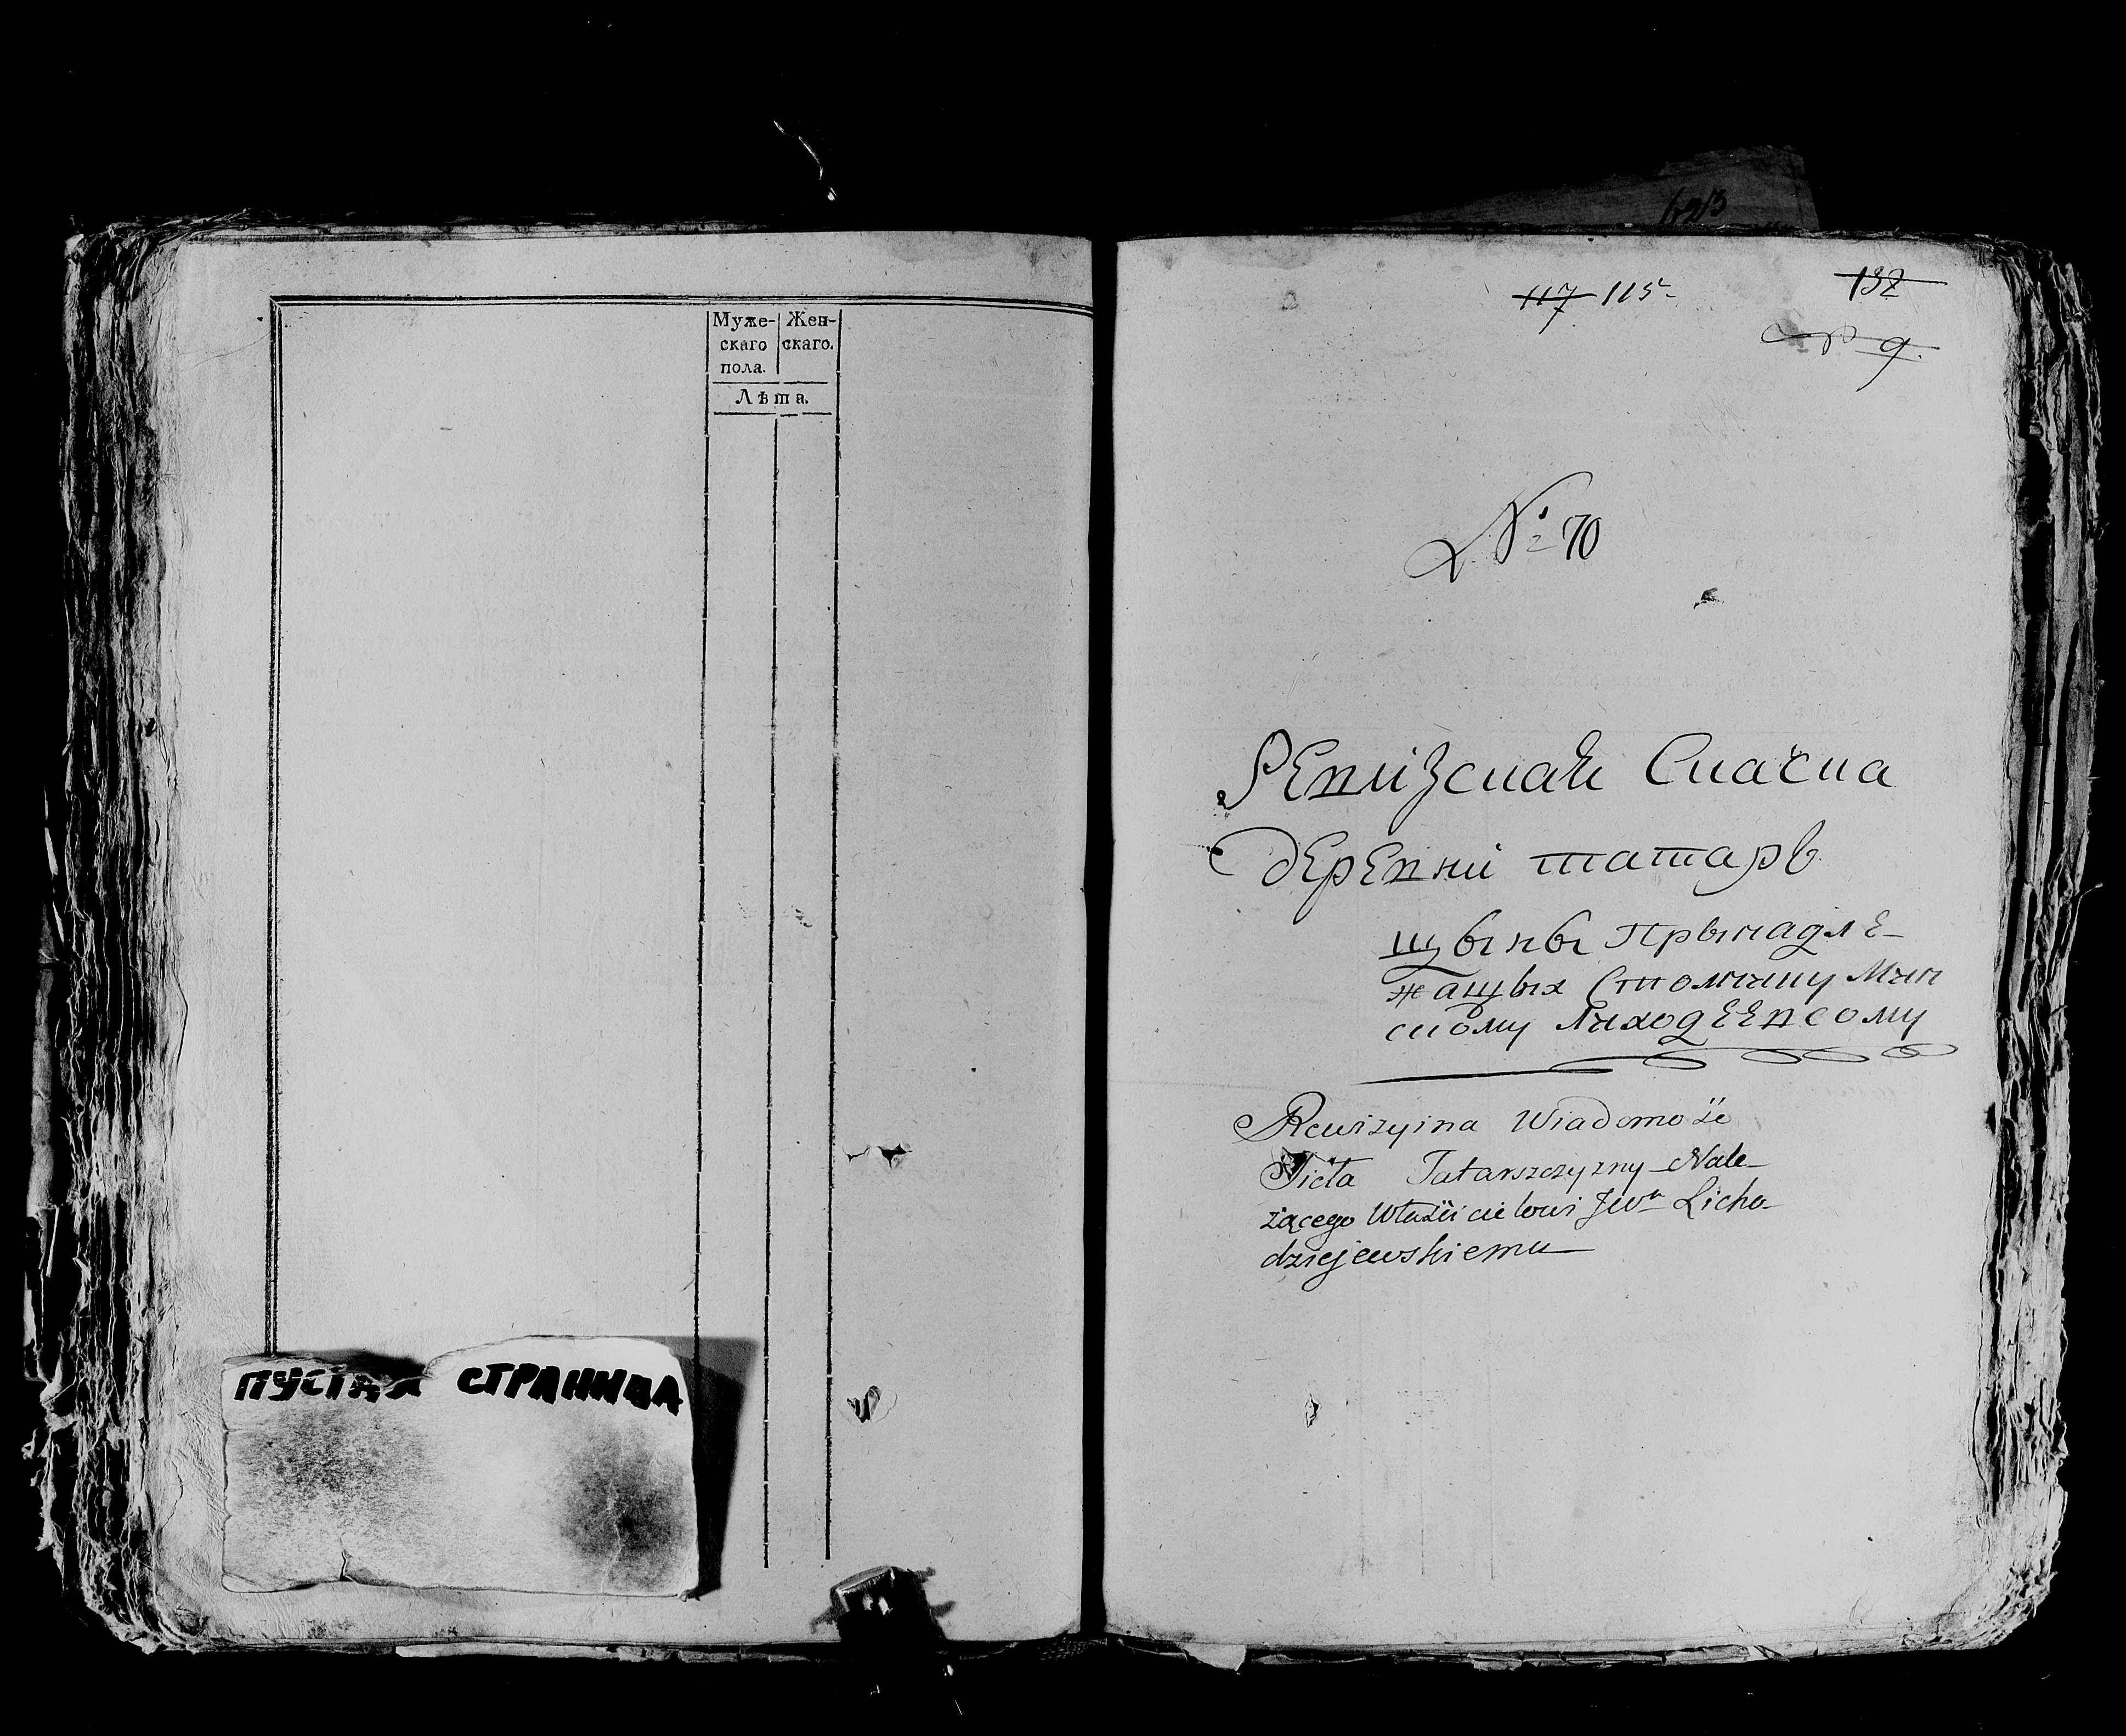 Муже-
скаго
пола.
Жен-
скаго.
Лѣта.
ПУСТАЯ СТРАНИЦА
623
117 115
132
9.
№ 70
Ревизская Скаска
деревни татарв
щывнвы Прынадле-
жащых Столнику Мин
скому Лиходеевсому
Rewizyina Wiadomość
Sioła Tatarszczyzny Nale-
żącego Właścicielowi JWn Licho-
dziejewskiemu